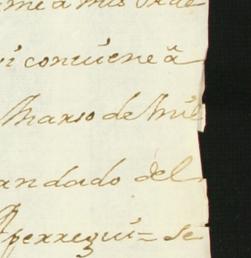 me à mis orde
i conviene â
Marso de mil
andado del
Aperregui = se